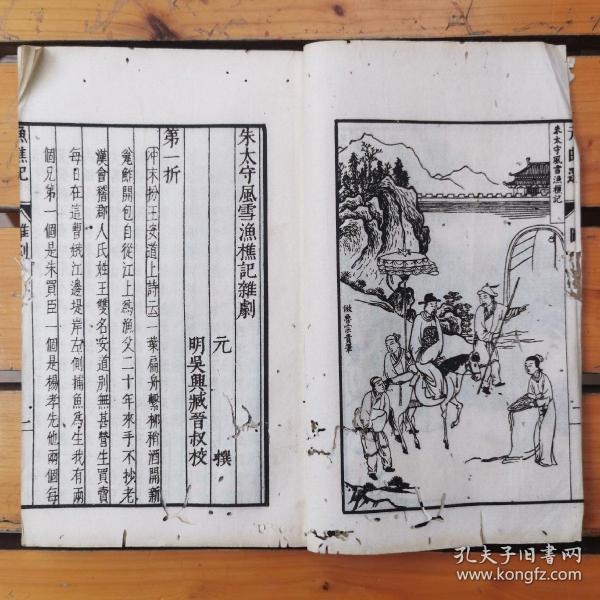 朱太守風雪漁樵記
朱太守風雪漁樵記雜劇
元 撰
明吳興臧晉叔校
第一折
冲末扮王安道上詩云一葉扁舟繫柳稍酒開新
甕鮓開包自從江上爲漁父二十年來手不抄老
漢會稽郡人氏姓王雙名安道別無甚營生買賣
每日在這曹娥江邊堤岸左側捕魚爲生我有兩
個兄弟一個是朱買臣一個是楊孝先他兩個每
漁樵記
雜劇
孔夫子旧書网
www.kongfz.com